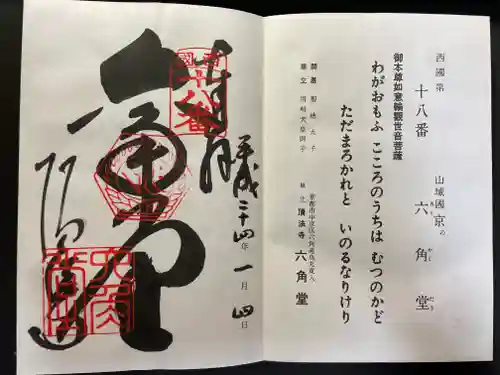 西國第
十八番
山城國 京の
六角堂
御本尊如意輪觀世音菩薩
わがおもふ こころのうちは むつのかど
ただまろかれと いのるなりけり
開基 聖徳太子
京都市中京区六角通烏丸東入
頂法寺 六角堂
奉拝
平成二十四年一月四日
西國
十八番
六角堂